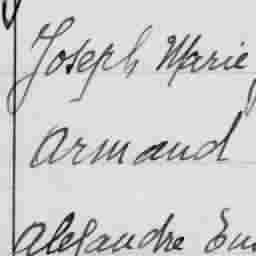 Joseph Marie
Armand
Alexandre